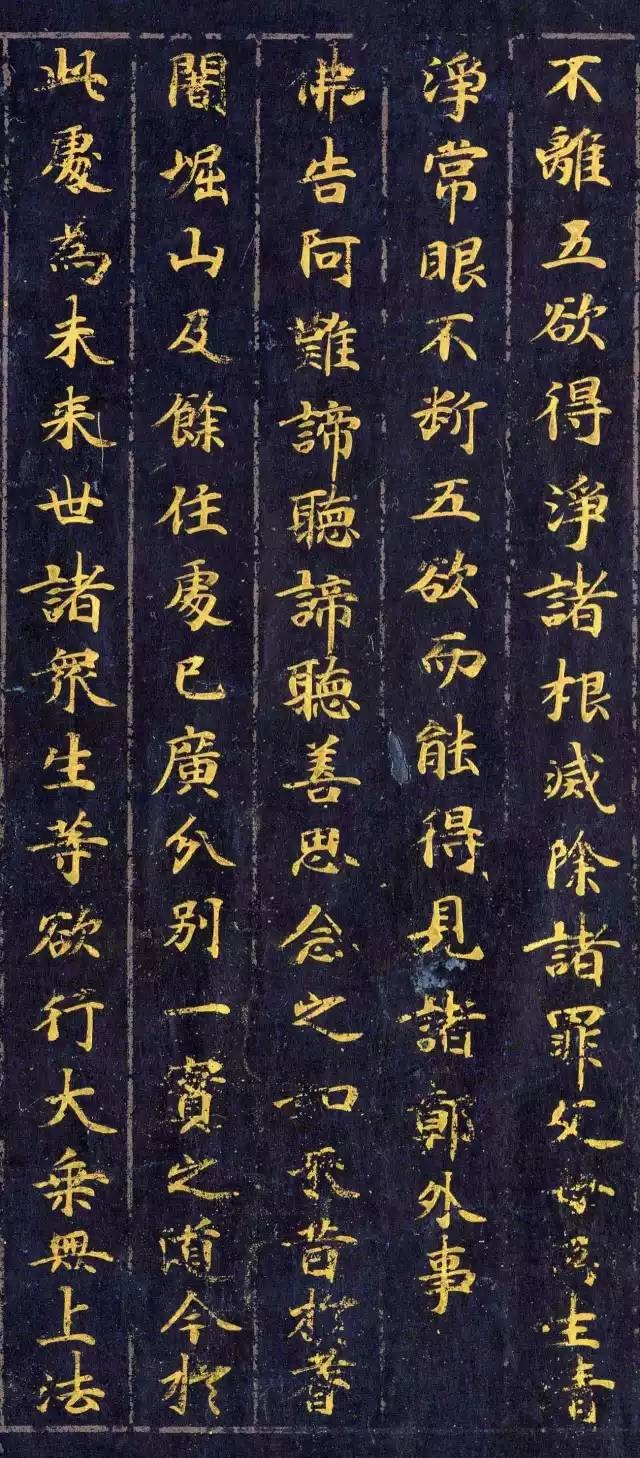 不離五欲得淨諸根滅除諸罪父母所生青
淨常眼不断五欲而能得見諸鄣外事
佛告阿難諦聽諦聽善思念之如來昔於耆
闍堀山及餘住處已廣分別一實之道今於
此處為未来世諸眾生等欲行大乘無上法